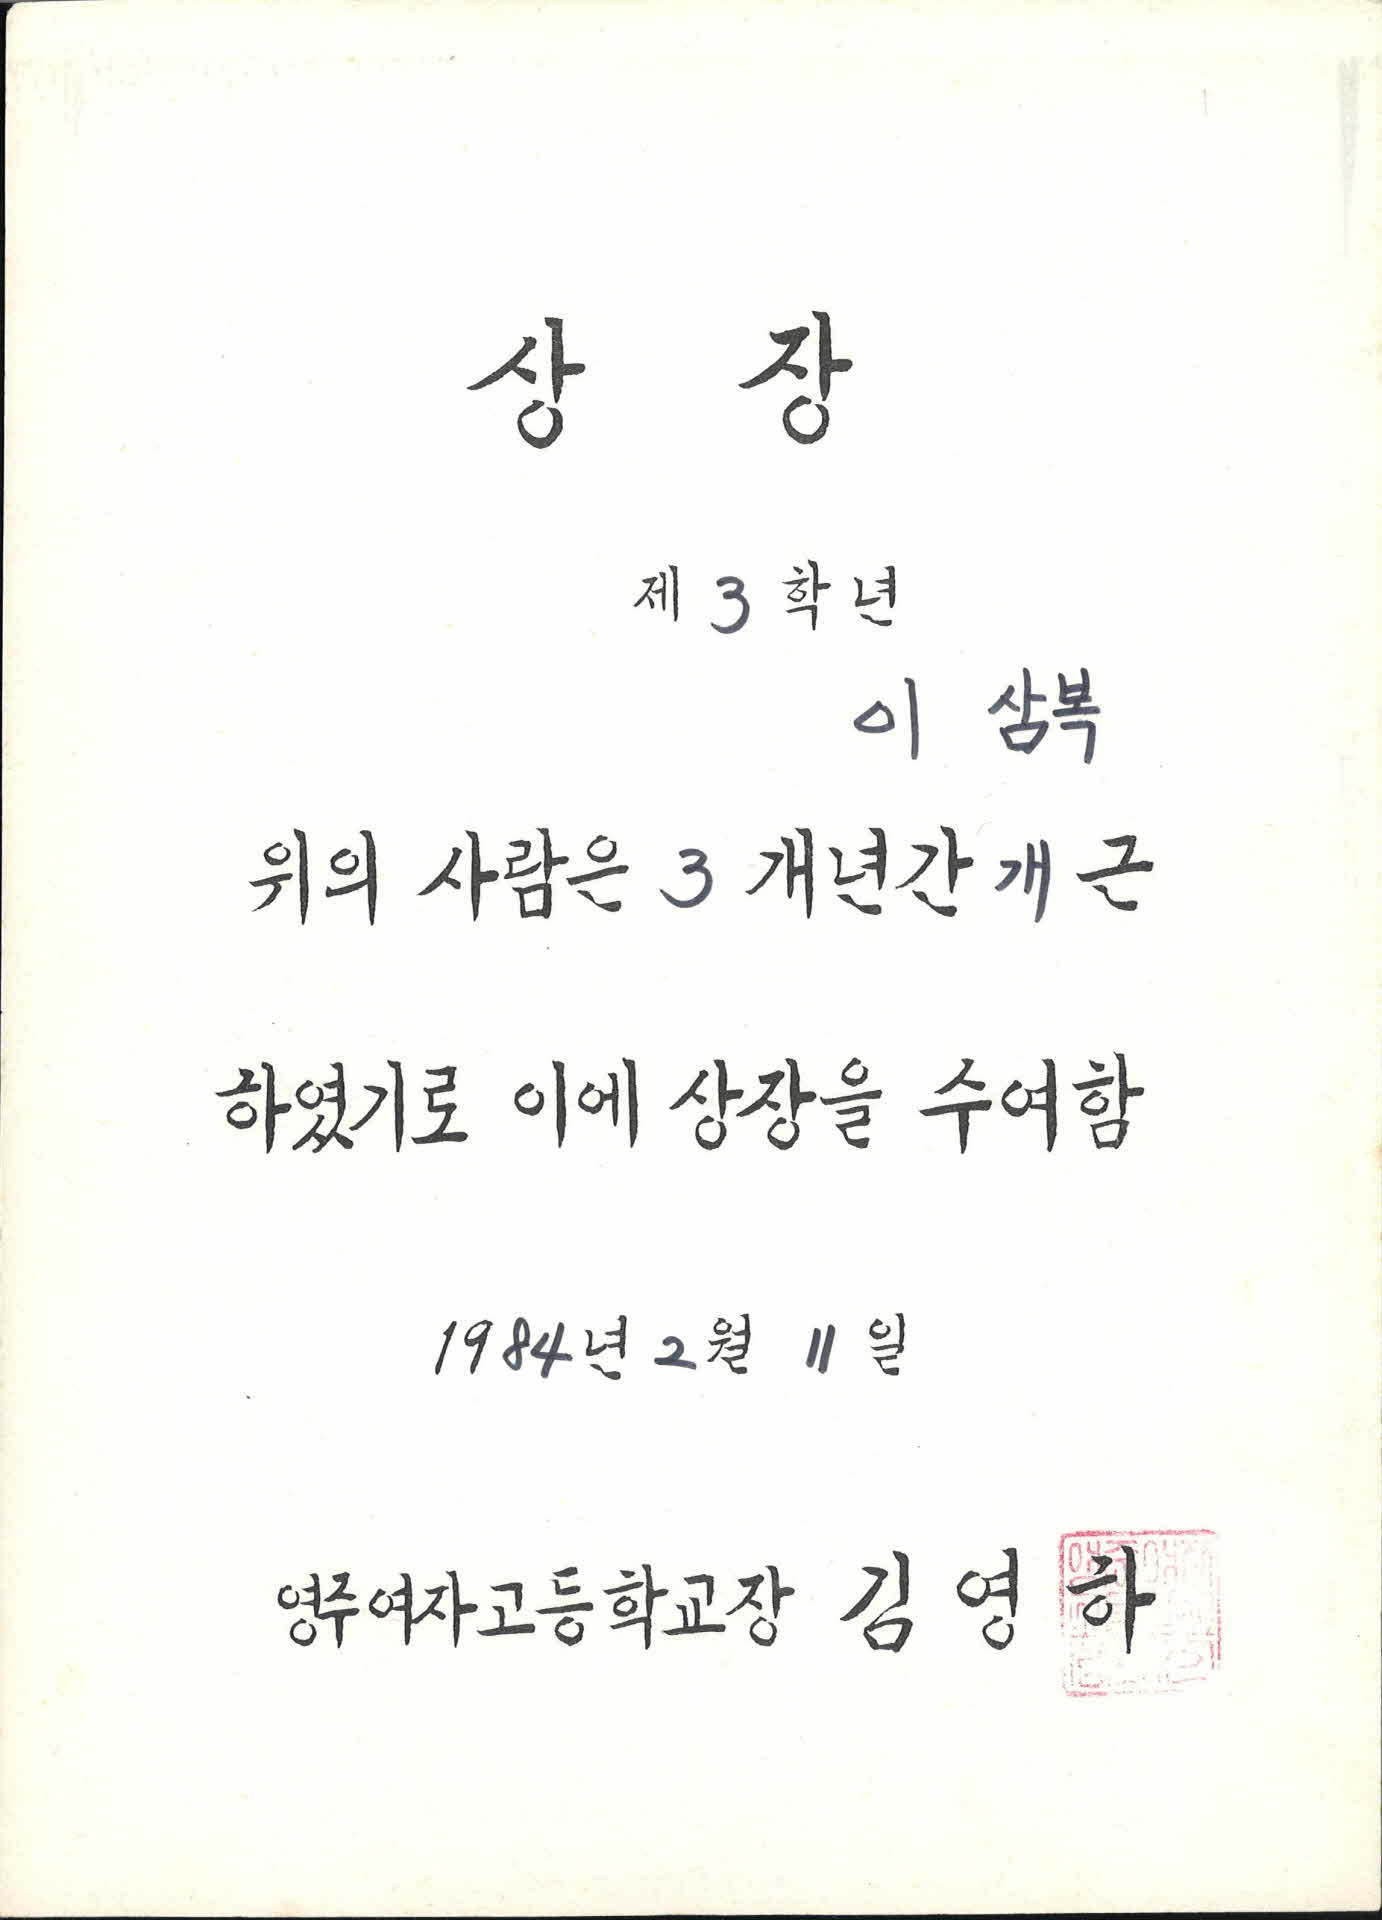 상 장
제 3 학년
이 삼복
위의 사람은 3 개년간 개근
하였기로 이에 상장을 수여함
1984년 2월 11일
영주여자고등학교장 김영하